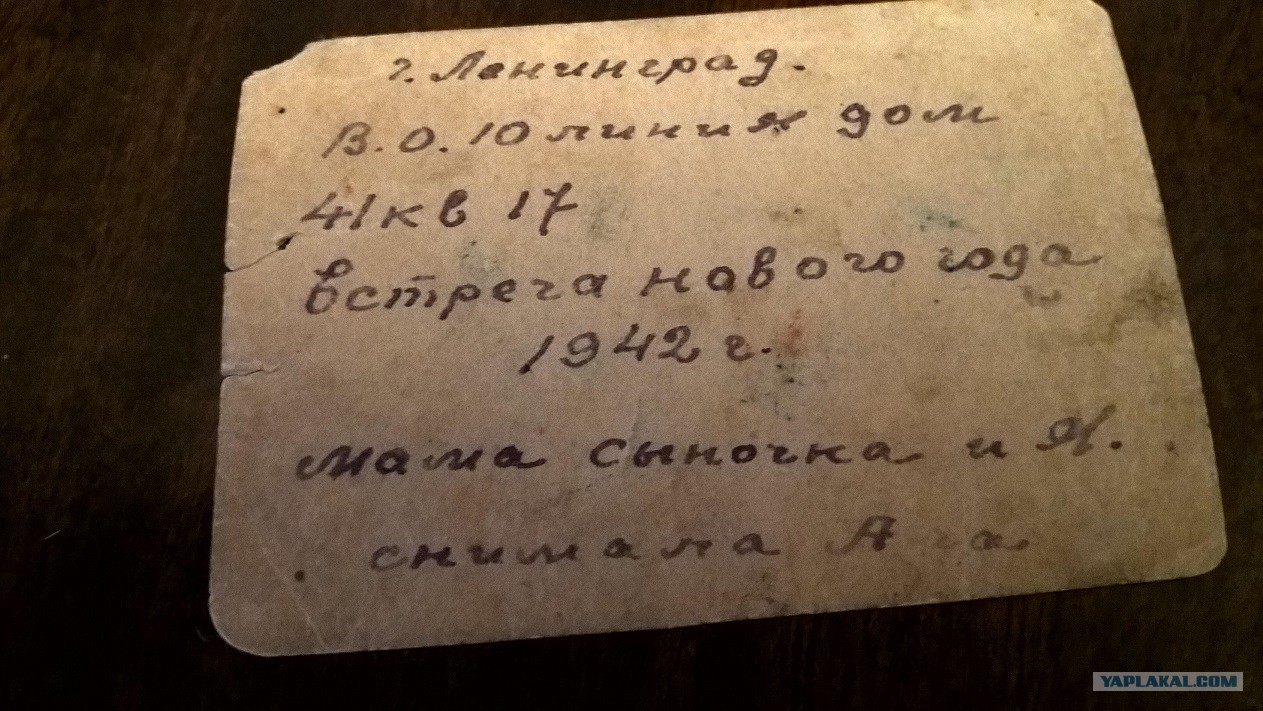 г. Ленинград.
В.О. 10 линия дом
41 кв 17
встреча нового года
1942 г.
мама сыночка и Я.
снимала
YAPLAKAL.COM